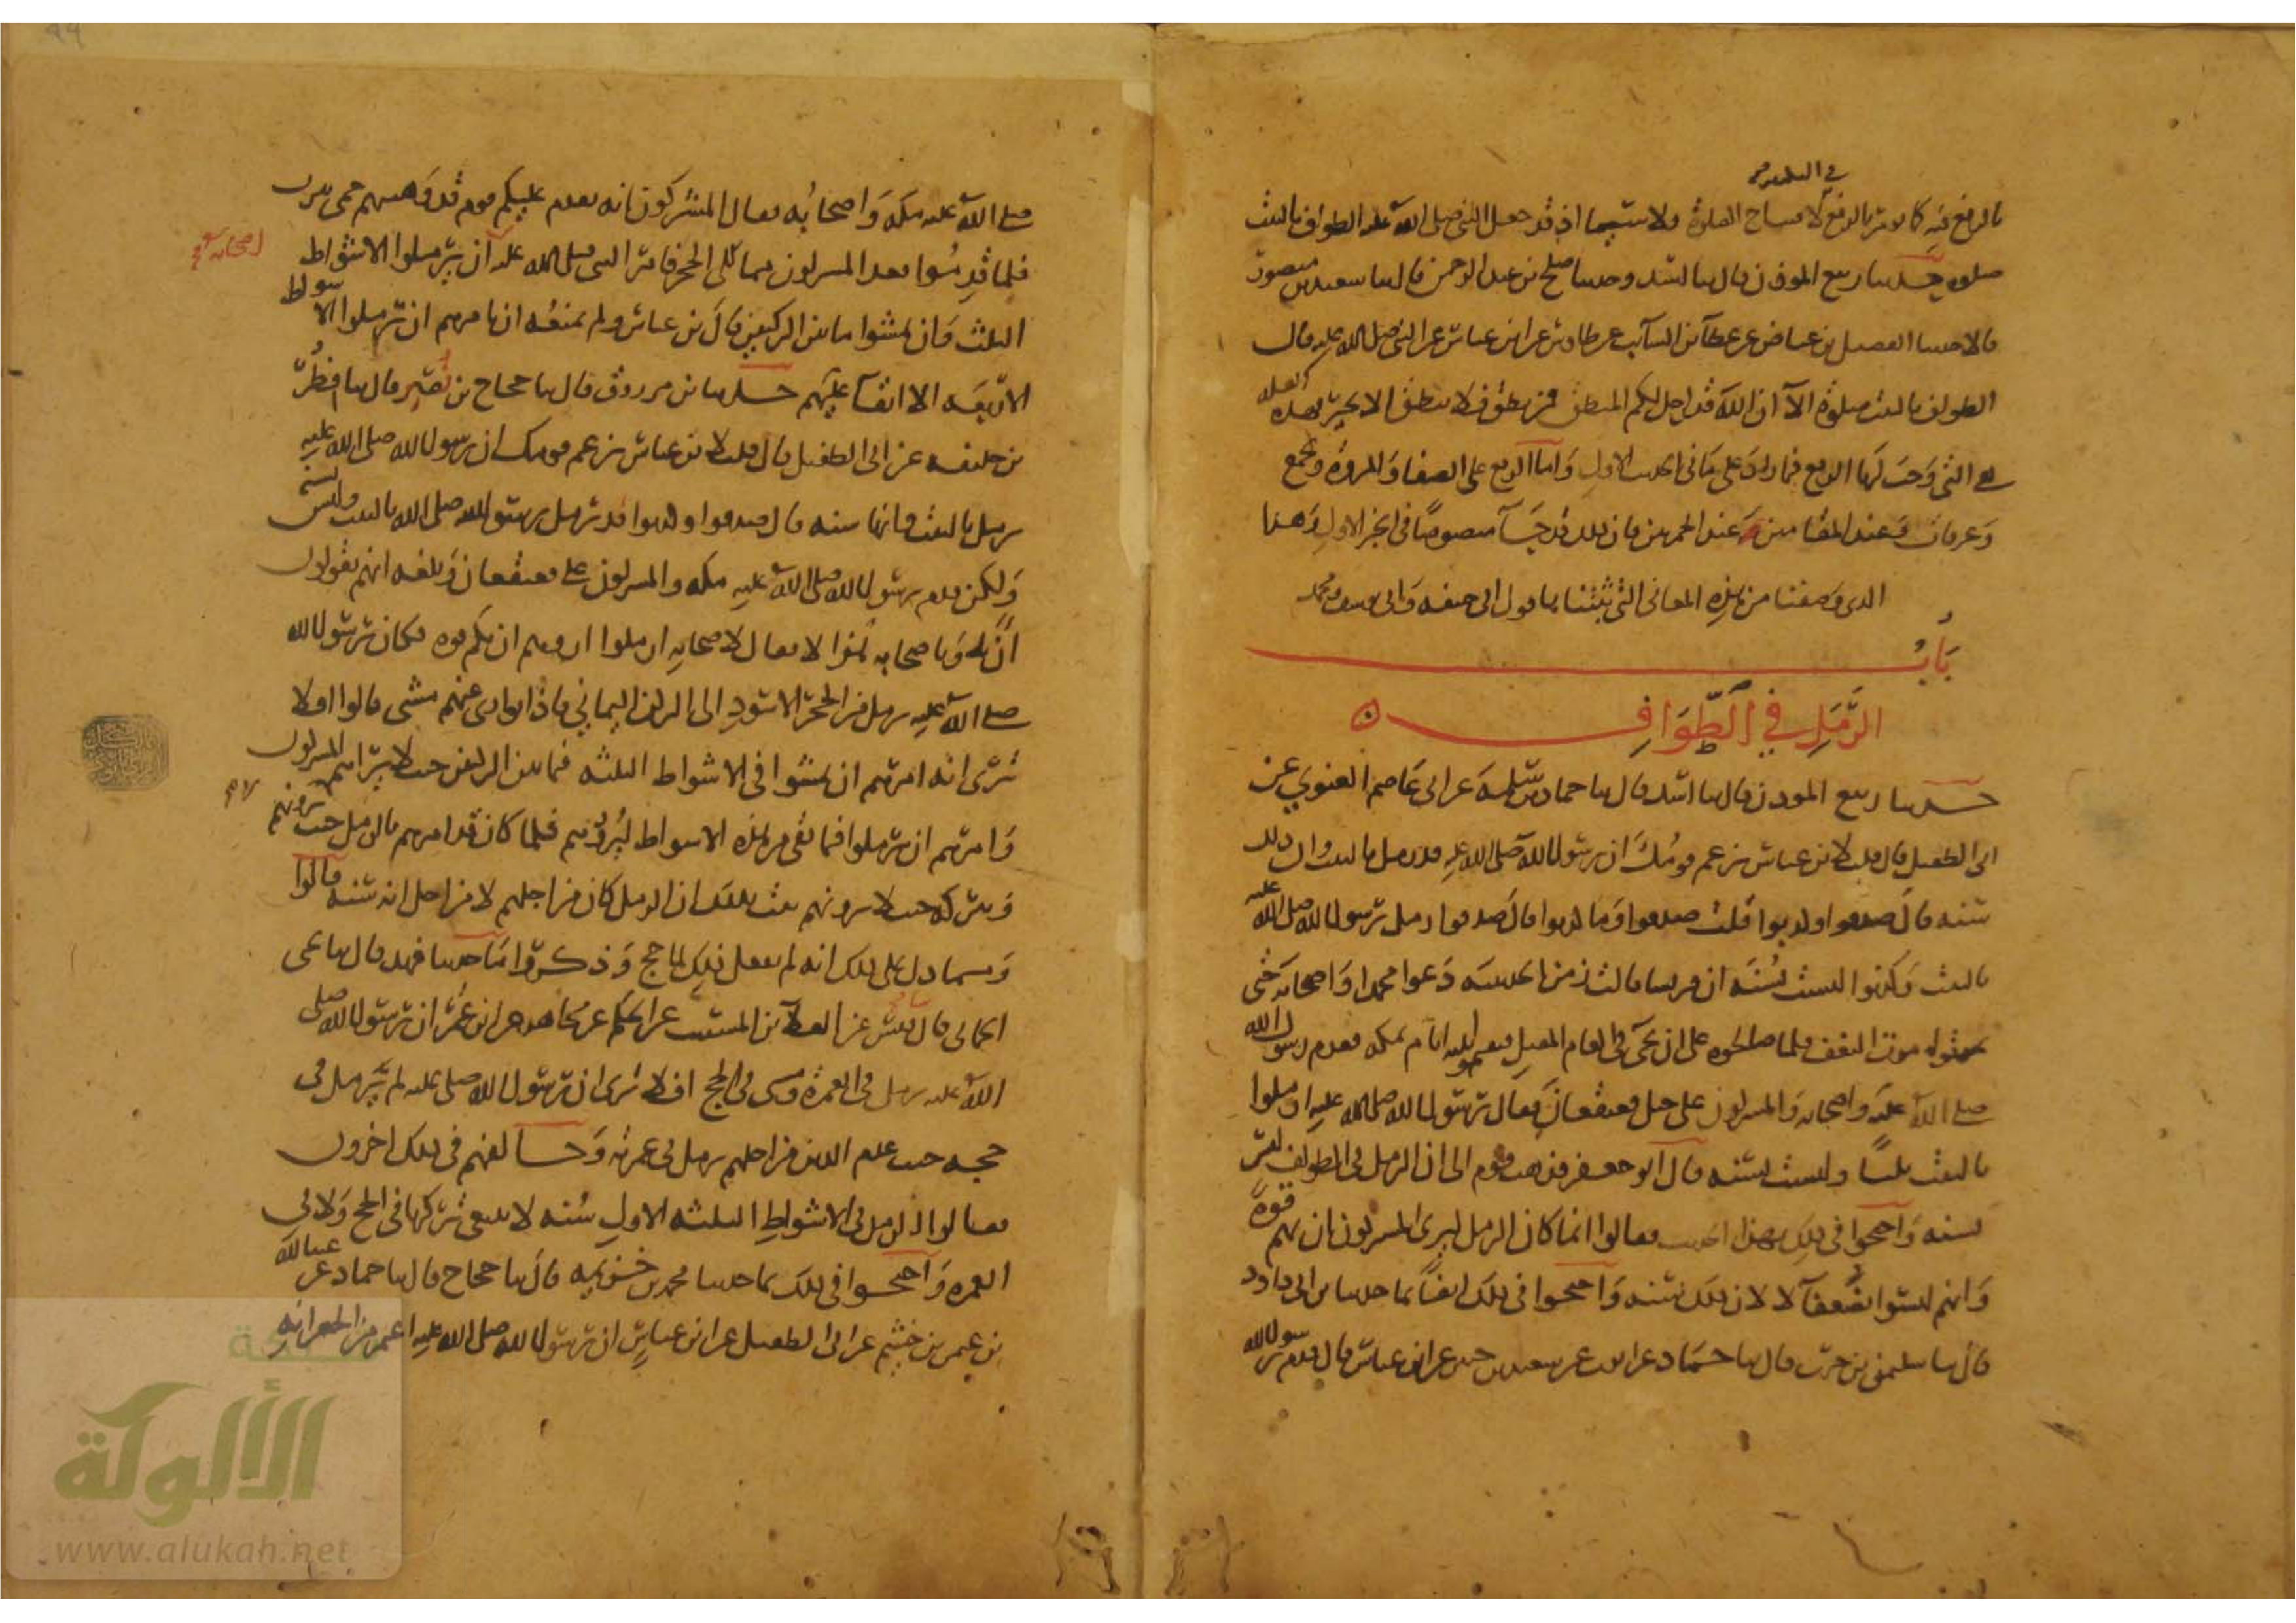 في التكبير
بالرفع فيه كما يؤمر بالرفع لافتتاح الصلوة ولا سيما اذ قد جعل النبي صلى الله عليه الطواف بالبيت
صلوة حدثنا ربيع الموذن قال ثنا اسد وحدثنا صلح بن عبد الرحمن قال ثنا سعيد بن منصور
قالا حدثنا الفضيل بن عياض عن عطآ بن السآيب عن طاوس عن ابن عباس عن النبي صلى الله عليه قال
الطواف بالبيت صلوة الا ان الله قد احل لكم المنطق فمن نطق فلا ينطق الا بخير فهذه العلة
هي التي وجب لها الرفع فيما زاد على ما في الحديث الاول واما الرفع على الصفا والمروة وبجمع
وعرفات وعند المقامين عند الجمرتين فان ذلك قد جآ منصوصا في الخبر الاول وهذا
الذي وصفنا من هذه المعاني التي ثبتنا ها قول ابي حنيفة وابي يوسف ومحمد
باب
الرمل في الطواف
حدثنا ربيع الموذن قال ثنا اسد قال ثنا حماد بن سلمة عن ابي عاصم الغنوي عن
ابي الطفيل قال قلت لابن عباس زعم قومك ان رسول الله صلى الله عليه قد رمل بالبيت وان ذلك
سنة قال صدقوا وكذبوا قلت ما صدقوا وما كذبوا قال صدقوا رمل رسول الله صلى الله عليه
بالبيت وكذبوا ليست بسنة ان قريشا قالت زمن الحديبية دعوا محمدا واصحابه حتى
يموتوا موت النغف فلما صالحوه على ان يجي في العام المقبل فيقيموا ثلثة ايام بمكة فقدم رسول الله
صلى الله عليه واصحابه والمشركون على جبل قعيقعان فقال رسول الله صلى الله عليه ارملوا
بالبيت ثلثا وليست بسنة قال ابو جعفر فذهب قوم الى ان الرمل في الطواف ليس
بسنة واحتجوا في ذلك بهذا الحديث وقالوا انما كان الرمل ليري المشركون ان بهم قوة
وانهم ليسوا بضعفآ لا لان ذلك سنة واحتجوا في ذلك ايضا بما حدثنا بن ابي داود
قال ثنا سليمن بن حرب قال ثنا حماد عن ايوب عن سعيد بن جبير عن ابن عباس قال قدم رسول الله
صلى الله عليه مكة واصحابه فقال المشركون انه يقدم عليكم قوم قد وهنتهم حمى يثرب
فلما قدموا قعد المشركون مما يلي الحجر فامر النبي صلى الله عليه ان يرملوا الاشواط
اصحابه
الثلثة وان يمشوا ما بين الركنين قال بن عباس ولم يمنعه ان يامرهم ان يرملوا الاشواط
الاربعة الا ابقآ عليهم حدثنا بن مرزوق قال ثنا حجاج بن نصير قال ثنا فطر
بن خليفة عن ابي الطفيل قال قلت لابن عباس زعم قومك ان رسول الله صلى الله عليه
رمل بالبيت وانها سنة قال صدقوا وكذبوا قد رمل رسول الله صلى الله بالبيت وليس بسنة
ولكن قدم رسول الله صلى الله عليه مكة والمشركون على قعيقعان وبلغه انهم يقولون
ان به وباصحابه هزالا فقال لاصحابه ارملوا اروهم ان بكم قوة فكان رسول الله
صلى الله عليه يرمل من الحجر الاسود الى الركن اليماني فاذا توارى عنهم مشى قالوا افلا
ترى انه امرهم ان يمشوا في الاشواط الثلثة فيما بين الركنين حيث لا يراهم المشركون
وامرهم ان يرملوا فيما بقي من هذه الاشواط ليروهم فلما كان قد امرهم بالرمل حيث يرونهم
وبتركه حيث لا يرونهم ثبت بذلك ان الرمل كان من اجلهم لا من اجل انه سنة قالوا
ومما دل على ذلك انه لم يفعل ذلك لما حج وذكروا ما حدثنا فهد قال ثنا يحيى
الحماني قال ثنا قيس عن العلآ بن المسيب عن الحكم عن مجاهد عن ابن عمر ان رسول الله صلى
الله عليه رمل في العمرة ومشى في الحج افلا ترى ان رسول الله صلى عليه لم يرمل في
حجه حيث عدم الذين من اجلهم رمل في عمرته وخالفهم في ذلك اخرون
فقالوا الرمل في الاشواط الثلثة الاول سنة لا ينبغي تركها في الحج ولا في
العمرة واحتجوا في ذلك بما حدثنا محمد بن خزيمة قال ثنا حجاج قال ثنا حماد عن عبد الله
بن عثمن بن خثيم عن ابي الطفيل عن ابن عباس ان رسول الله صلى الله عليه اعتمر من الجعرانة
الألوكة
www.alukah.net